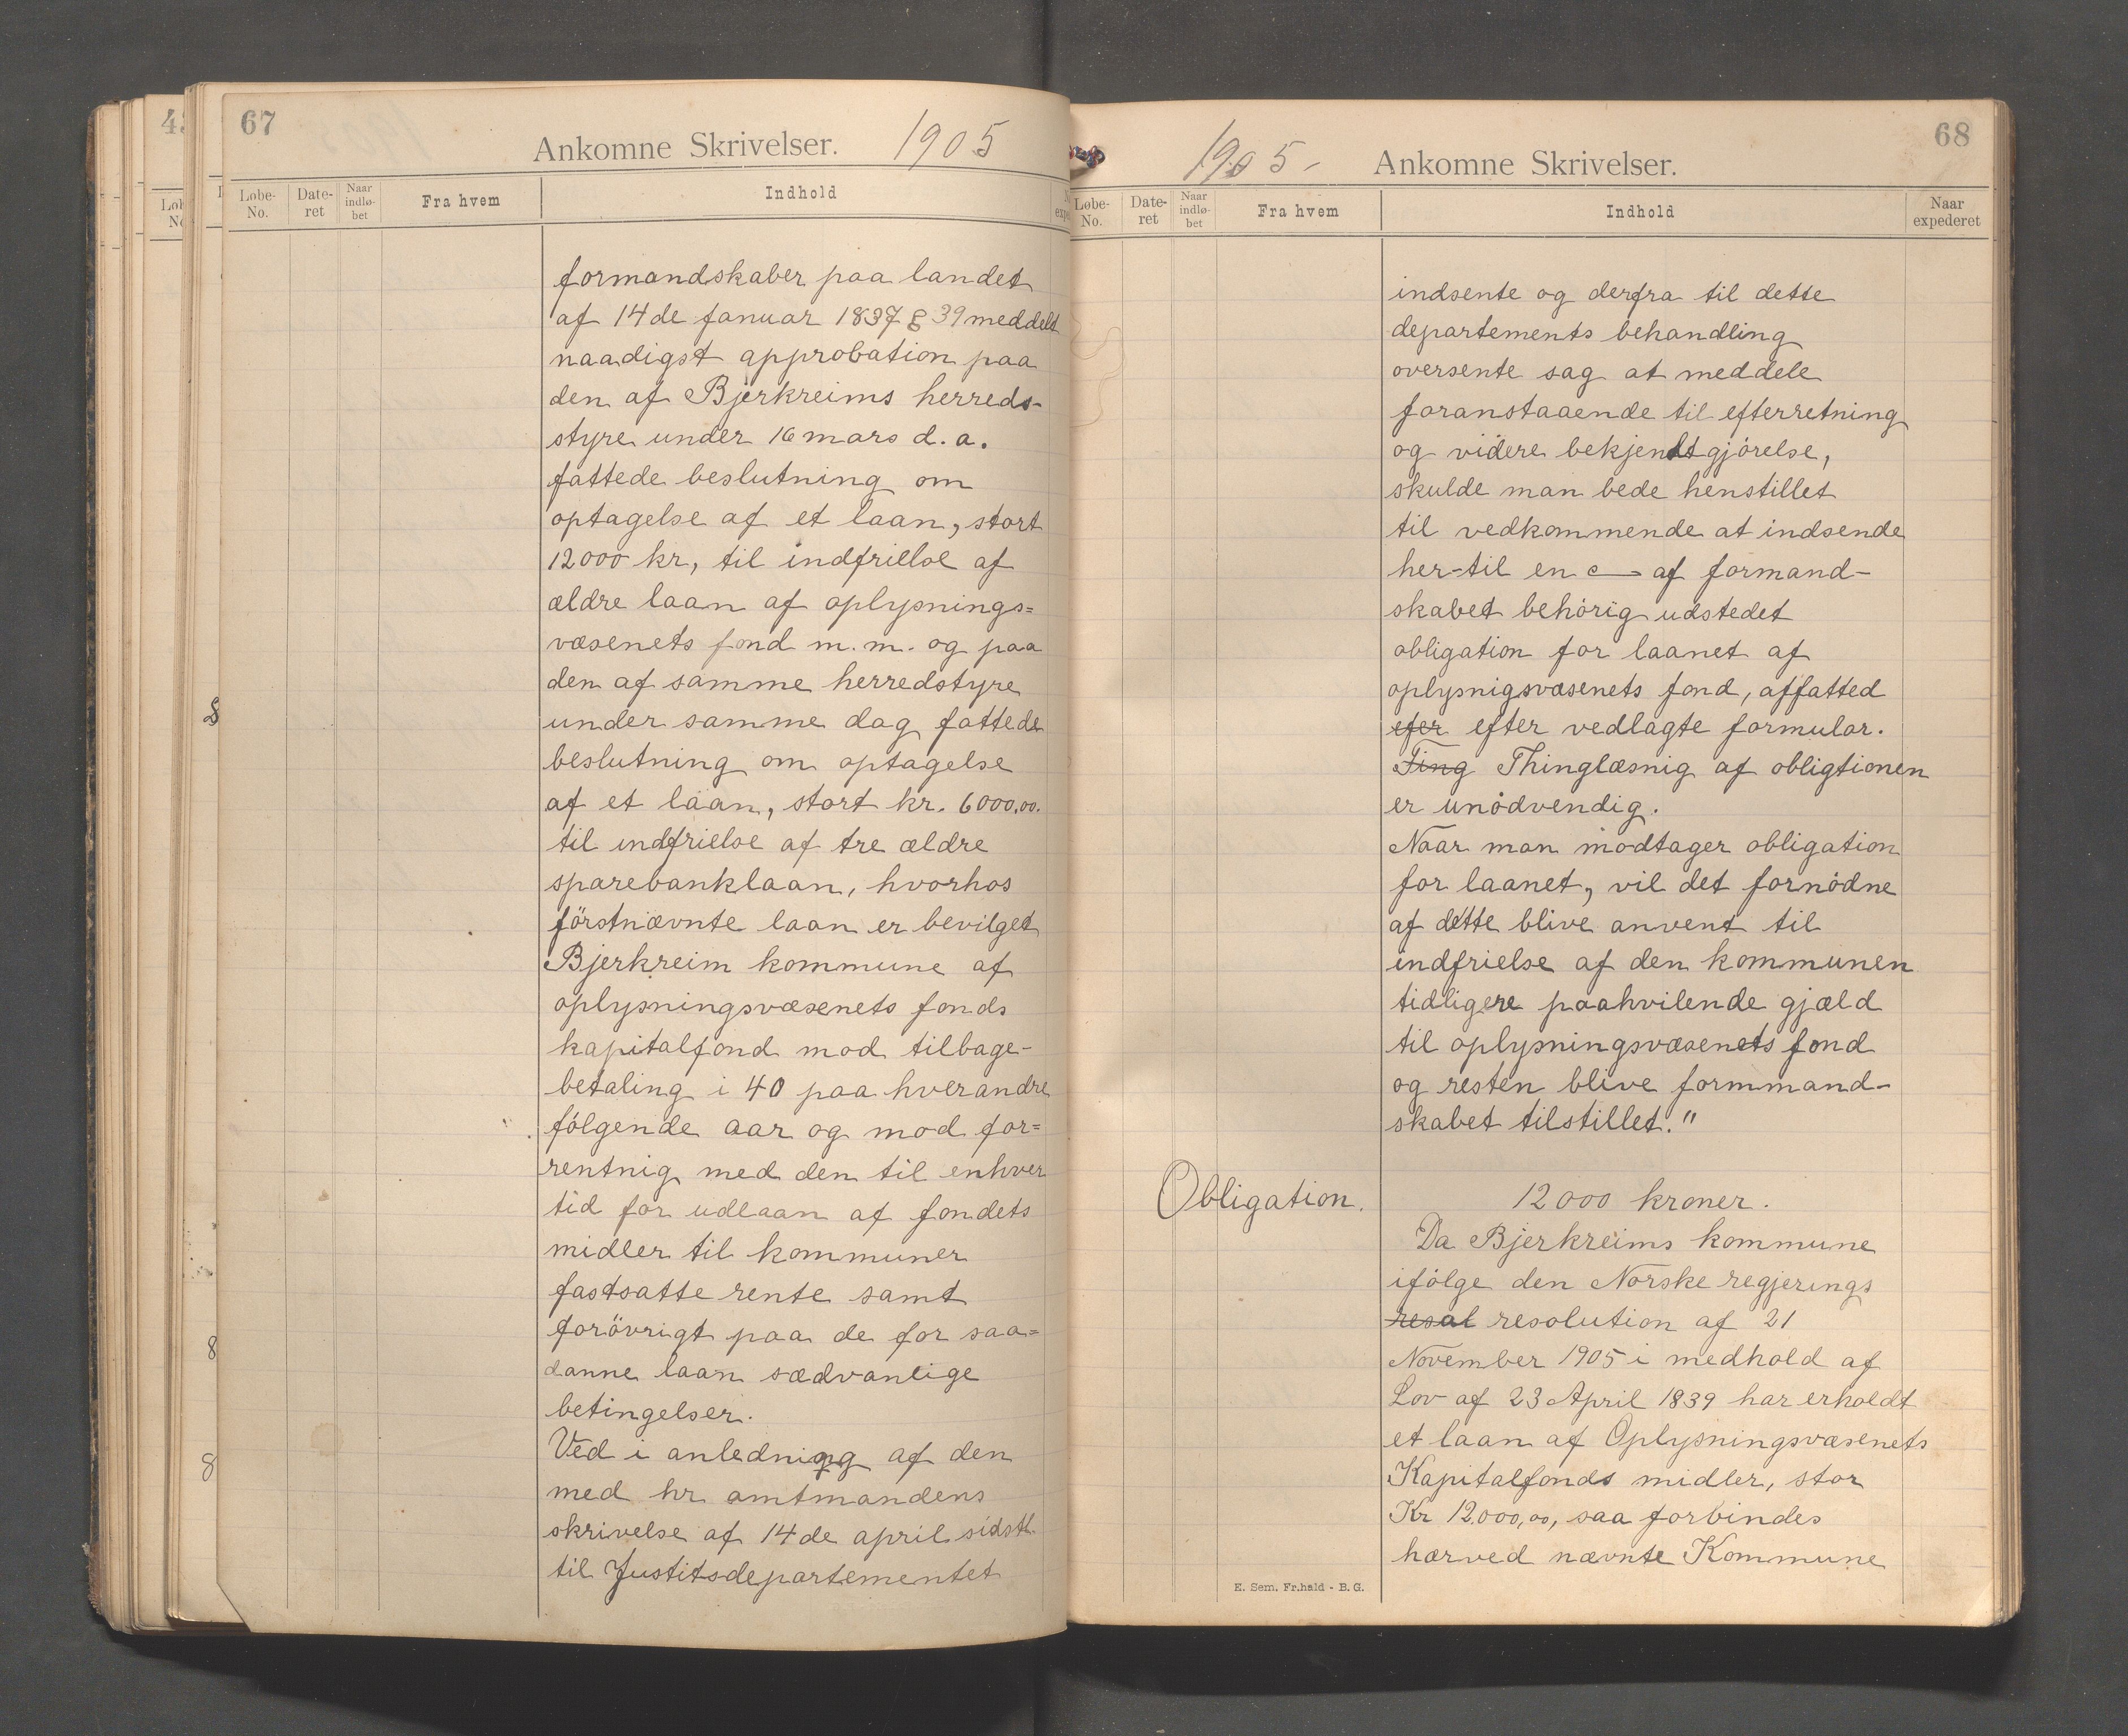 67
Ankomne Skrivelser. 1905
Løbe-No. Date-ret Naar indlø-bet Fra hvem Indhold
formandskaber paa landet
af 14de Januar 1837 § 39 meddelt
naadigst approbation paa
den af Bjerkreims herreds-
styre under 16 mars d. a.
fattede beslutning om
optagelse af et laan, stort
12000 kr, til indfrielse af
ældre laan af oplysnings=
væsenets fond m.m. og paa
den af samme herredstyre
under samme dag fattede
beslutning om optagelse
af et laan, stort kr. 6000,00.
til indfrielse af tre ældre
sparebanklaan, hvorhos
förstnævnte laan er bevilget
Bjerkreim kommune af
oplysningsvæsenets fonds
kapitalfond mod tilbage-
betaling i 40 paa hverandre
fölgende aar og mod for=
rentnig med den til enhver
tid for udlaan af fondets
midler til kommuner
fastsatte rente samt
forövrigt paa de for saa=
danne laan sædvanlige
betingelser.
Ved i anledning af den
med hr amtmandens
skrivelse af 14de april sidstl.
til Justitsdepartementet
68
1905- Ankomne Skrivelser.
Løbe-No. Date-ret Naar indlø-bet Fra hvem Indhold Naar expederet
indsente og derfra til dette
departements behandling
oversente sag at meddele
foranstaaende til efterretning
og videre bekjendtgjörelse,
skulde man bede henstillet
til vedkommende at indsende
her-til en af formand-
skabet behörig udstedet
obligation for laanet af
oplysnigsvæsenets fond, affatted
efer efter vedlagte formular.
Ting Thinglæsnig af obligtionen
er unödvendig.
Naar man modtager obligation
for laanet, vil det fornödne
af dette blive anvent til
indfrielse af den kommunen
tidligere paahvilende gjæld
til oplysningsvæsenets fond
og resten blive formmand-
skabet tilstillet."
Obligation. 12000 kroner.
Da Bjerkreims kommune
ifölge den Norske regjerings
resol resolution af 21
November 1905 i medhold af
Lov af 23 April 1839 har erholdt
et laan af Oplysningsvæsenets
Kapitalfonds midler, stor
Kr 12.000,00, saa forbindes
hærved nævnte Kommune
E. Sem. Fr.hald - B. G.